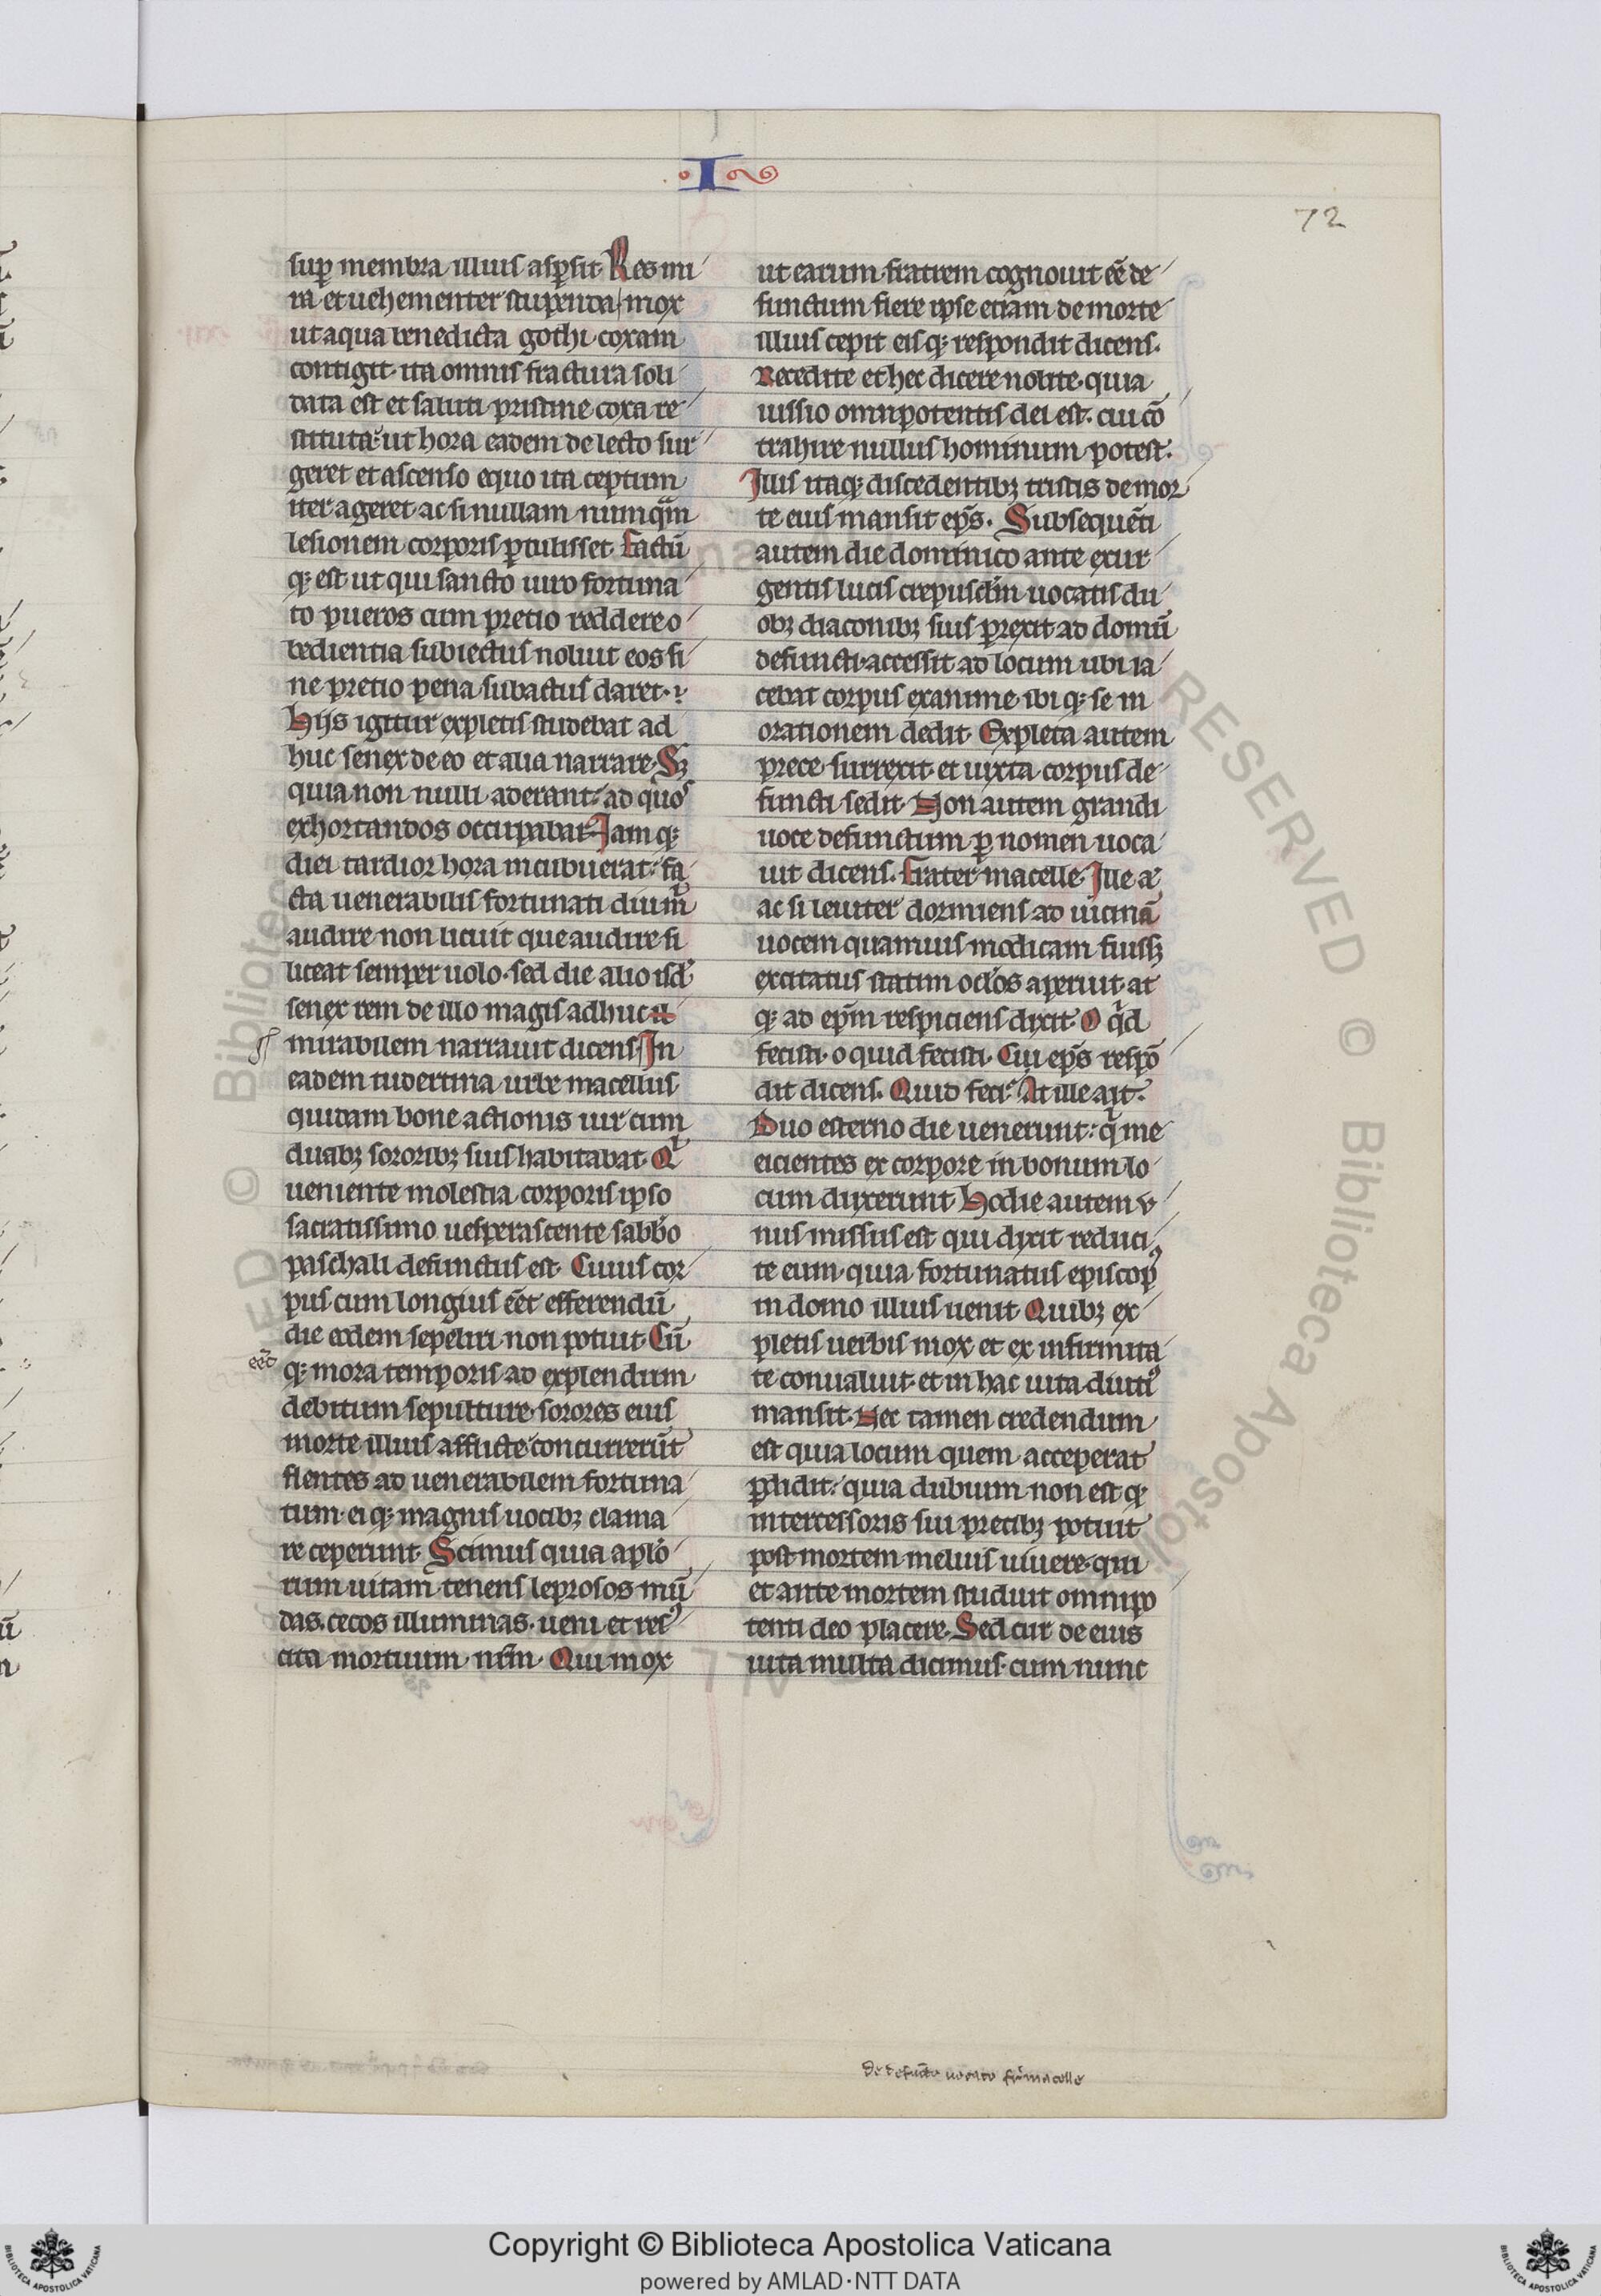 I
72
sup̱ membra illius asp̱sit. Res mi
ra et uehementer stupenda mox
ut aqua benedicta gothi coxam
contigit. ita omnis fractura soli
data est et saluti pristine coxa re
stituta: ut hora eadem de lecto sur
geret et ascenso equo ita ceptum
iter ageret. ac si nullam numqᵃm
lesionem corporis p̱tulisset. Factū
qꝫ est ut qui sancto uiro fortuna
to pueros cum pretio reddere o
bedientia subiectus noluit eos si
ne pretio pena subactus daret.
Hijs igitur expletis studebat ad
huc senex de eo et alia narrare. Sꝫ
quia non nulli aderant: ad quos
exhortandos occupabar. Jam qꝫ
diei tardior hora incubuerat: fa
cta uenerabilis fortunati diu m̄
audire non licuit que audire si
liceat semper uolo. sed die alio isd̄
senex rem de illo magis adhuc
mirabilem narrauit dicens. In
eadem tudertina urbe macellus
quidam bone actionis uir cum
duabꝫ sororibꝫ suis habitabat. Qⁱ
ueniente molestia corporis ipso
sacratissimo uesperascente sabbo
paschali defunctus est. Cuius cor
pus cum longius eēt efferendū
die eodem sepeliri non potuit. Cū
eēt
qꝫ mora temporis ad explendum
debitum sepulture. sorores eius
morte illius afflicte concurrerūt
flentes ad uenerabilem fortuna
tum. ei qꝫ magnis uocibꝫ clama
re ceperunt. Scimus quia aplo
rum uitam tenens leprosos mū
das. cecos illuminas. ueni et resꝰ
cita mortuum nrm̄. Qui mox
ut earum fratrem cognouit eē de
functum flere ipse etiam de morte
illius cepit eis qꝫ respondit dicens.
Recedite et hec dicere nolite. quia
iussio omnipotentis dei est. cui cō
trahire nullus hominum potest.
Illis itaqꝫ discedentibꝫ tristis de mor
te eius mansit ep̄s. Subsequēti
autem die dominico ante exur
gentis lucis crepusclm uocatis du
obꝫ diaconibꝫ suis p̱rexit ad domū
defuncti. accessit ad locum ubi ia
cebat corpus exanime. ibi qꝫ se in
orationem dedit. Expleta autem
prece surrexit. et iuxta corpus de
functi sedit. Non autem grandi
uoce defunctum p̱ nomen uoca
uit dicens. Frater macelle. Ille aͨ
ac si leuiter dormiens ad uicinā
uocem quamuis modicam fuissꝫ
excitatus statim oclos aperuit. at
qꝫ ad ep̄m respiciens dixit. O qⁱd
fecisti. o quid fecisti. Cui ep̄s respō
dit dicens. Quid feci? At ille ait.
Duo esterno die uenerunt: qⁱ me
eicientes ex corpore in bonum lo
cum duxerunt. Hodie autem v
nus missus est qui dixit reduci
te eum. quia fortunatus episcopꝰ
in domo illius uenit. Quibꝫ ex
pletis uerbis mox et ex infirmita
te conualuit. et in hac uita diutiꝰ
mansit. Nec tamen credendum
est quia locum quem acceperat
p̱didit: quia dubium non est qꝫ
intercessoris sui precibꝫ potuit
post mortem melius uiuere. qui
et ante mortem studuit omnipo
tenti deo placere. Sed cur de eius
uita multa dicimus. cum nunc
de defūcto uocato fr̄ macelle
Copyright © Biblioteca Apostolica Vaticana
powered by AMLAD·NTT DATA